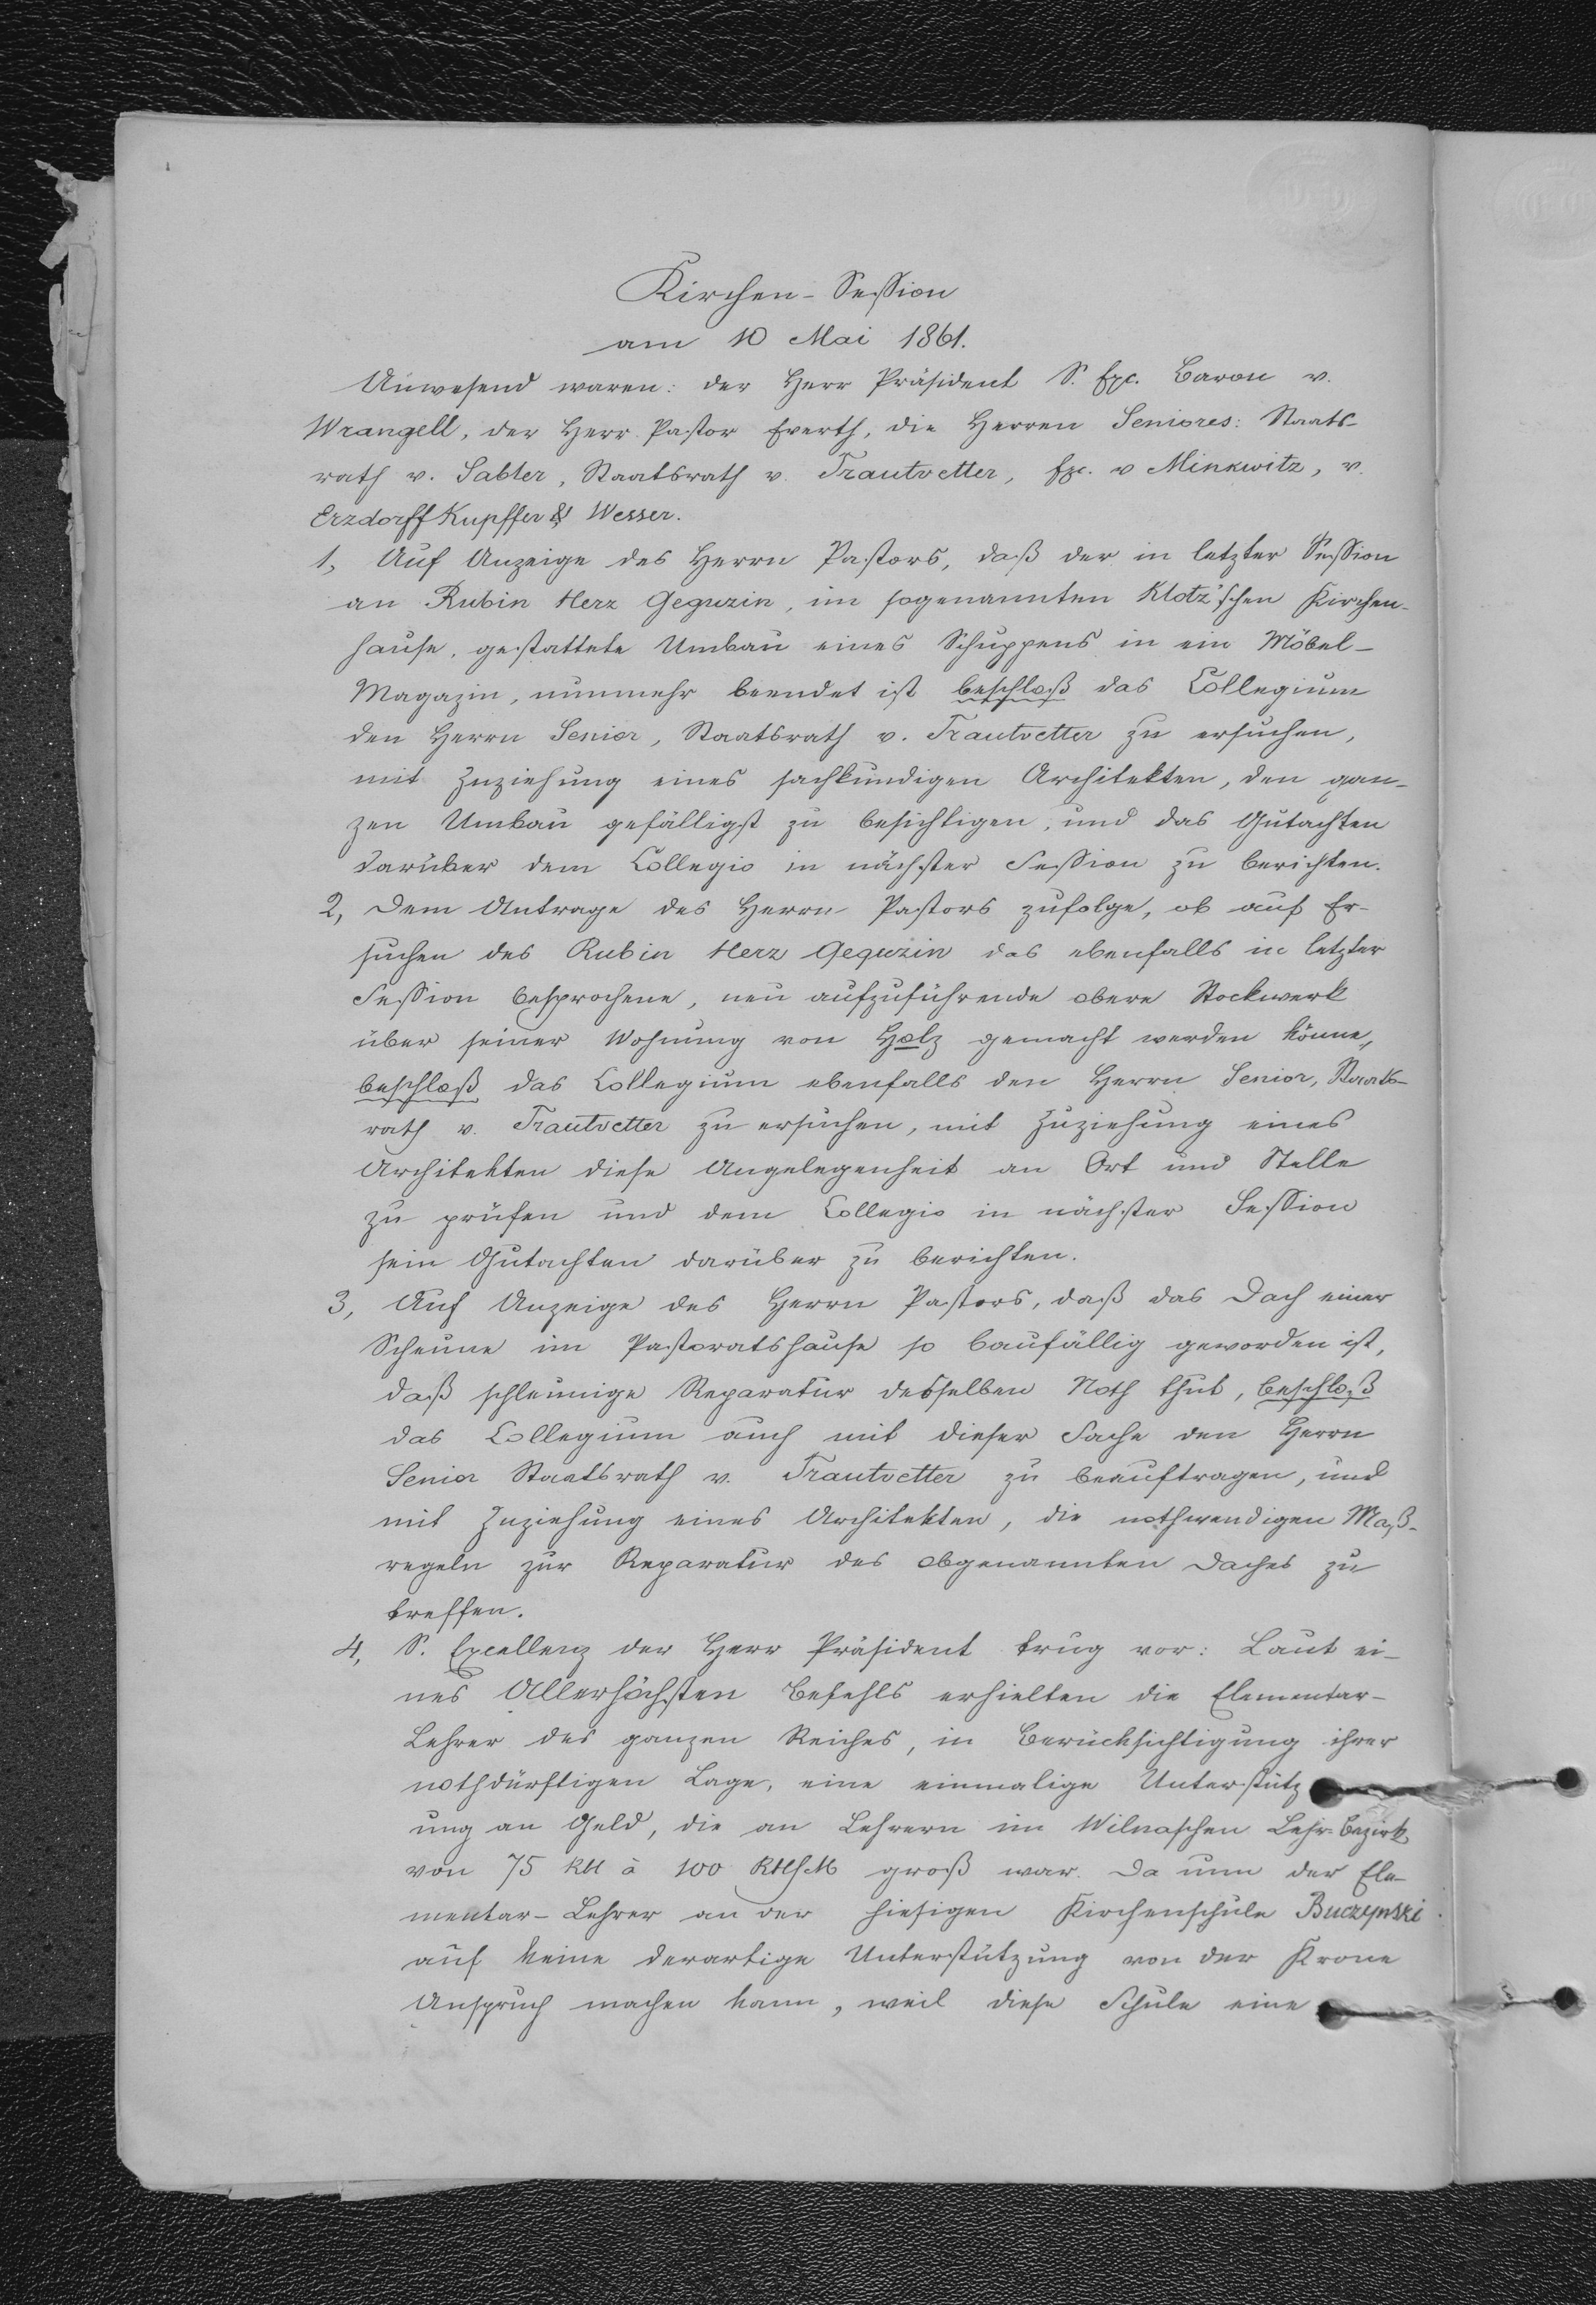 Kirchen-Session
am 10 Mai 1861.
Anwesend waren: der Herr Präsident S. Exc. Baron v.
Wrangell, der Herr Pastor Everth, die Herren Seniores: Staats-
rath v. Sabler, Staatsrath v. Trautvetter, Exc. v Minkwitz, v.
Erzdorff Kupffer & Wesser.
1, Auf Anzeige des Herrn Pastors, daß der in letzter Session
an Rubin Herz Geguzin, im sogenannten Klotz'schen Kirchen-
hause, gestattete Umbau eines Schuppens in ein Möbel-
Magazin, nunmehr beendet ist beschloß das Collegium
den Herrn Senior, Staatsrath v. Trautvetter zu ersuchen,
mit Zuziehung eines sachkundigen Architekten, den gan-
zen Umbau gefälligst zu besichtigen, und das Gutachten
darüber dem Collegio in nächster Session zu berichten.
2, Dem Antrage des Herrn Pastors zufolge, ob auf Er-
suchen des Rubin Herz Geguzin das ebenfalls in letzter
Session besprochene, neu aufzuführende obere Stockwerk
über seiner Wohnung von Holz gemacht werden könne,
beschloß das Collegium ebenfalls den Herrn Senior, Staats-
rath v. Trautvetter zu ersuchen, mit Zuziehung eines
Architekten diese Angelegenheit an Ort und Stelle
zu prüfen und dem Collegio in nächster Session
sein Gutachten darüber zu berichten.
3, Auf Anzeige des Herrn Pastors, daß das Dach einer
Scheune im Pastoratshause so baufällig geworden ist,
daß schleunige Reparatur desselben Noth thut, beschloß
das Collegium auch mit dieser Sache den Herrn
Senior Staatsrath v. Trautvetter zu beauftragen, und
mit Zuziehung eines Architekten, die nothwendigen Maß-
regeln zur Reparatur des obgenannten Daches zu
treffen.
4, S. Excellenz der Herr Präsident trug vor: Laut ei-
nes Allerhöchsten Befehls erhielten die Elementar-
Lehrer des ganzen Reiches, in Berücksichtigung ihrer
nothdürftigen Lage, eine einmalige Unterstütz
ung an Geld, die an Lehrern im Wilnaschen Lehr-Bezirk
von 75 Rbl à 100 Rbl S.M groß war. Da nun der Ele-
mentar-Lehrer an der hiesigen Kirchenschule Buczynski
auf keine derartige Unterstützung von der Krone
Anspruch machen kann, weil diese Schule eine